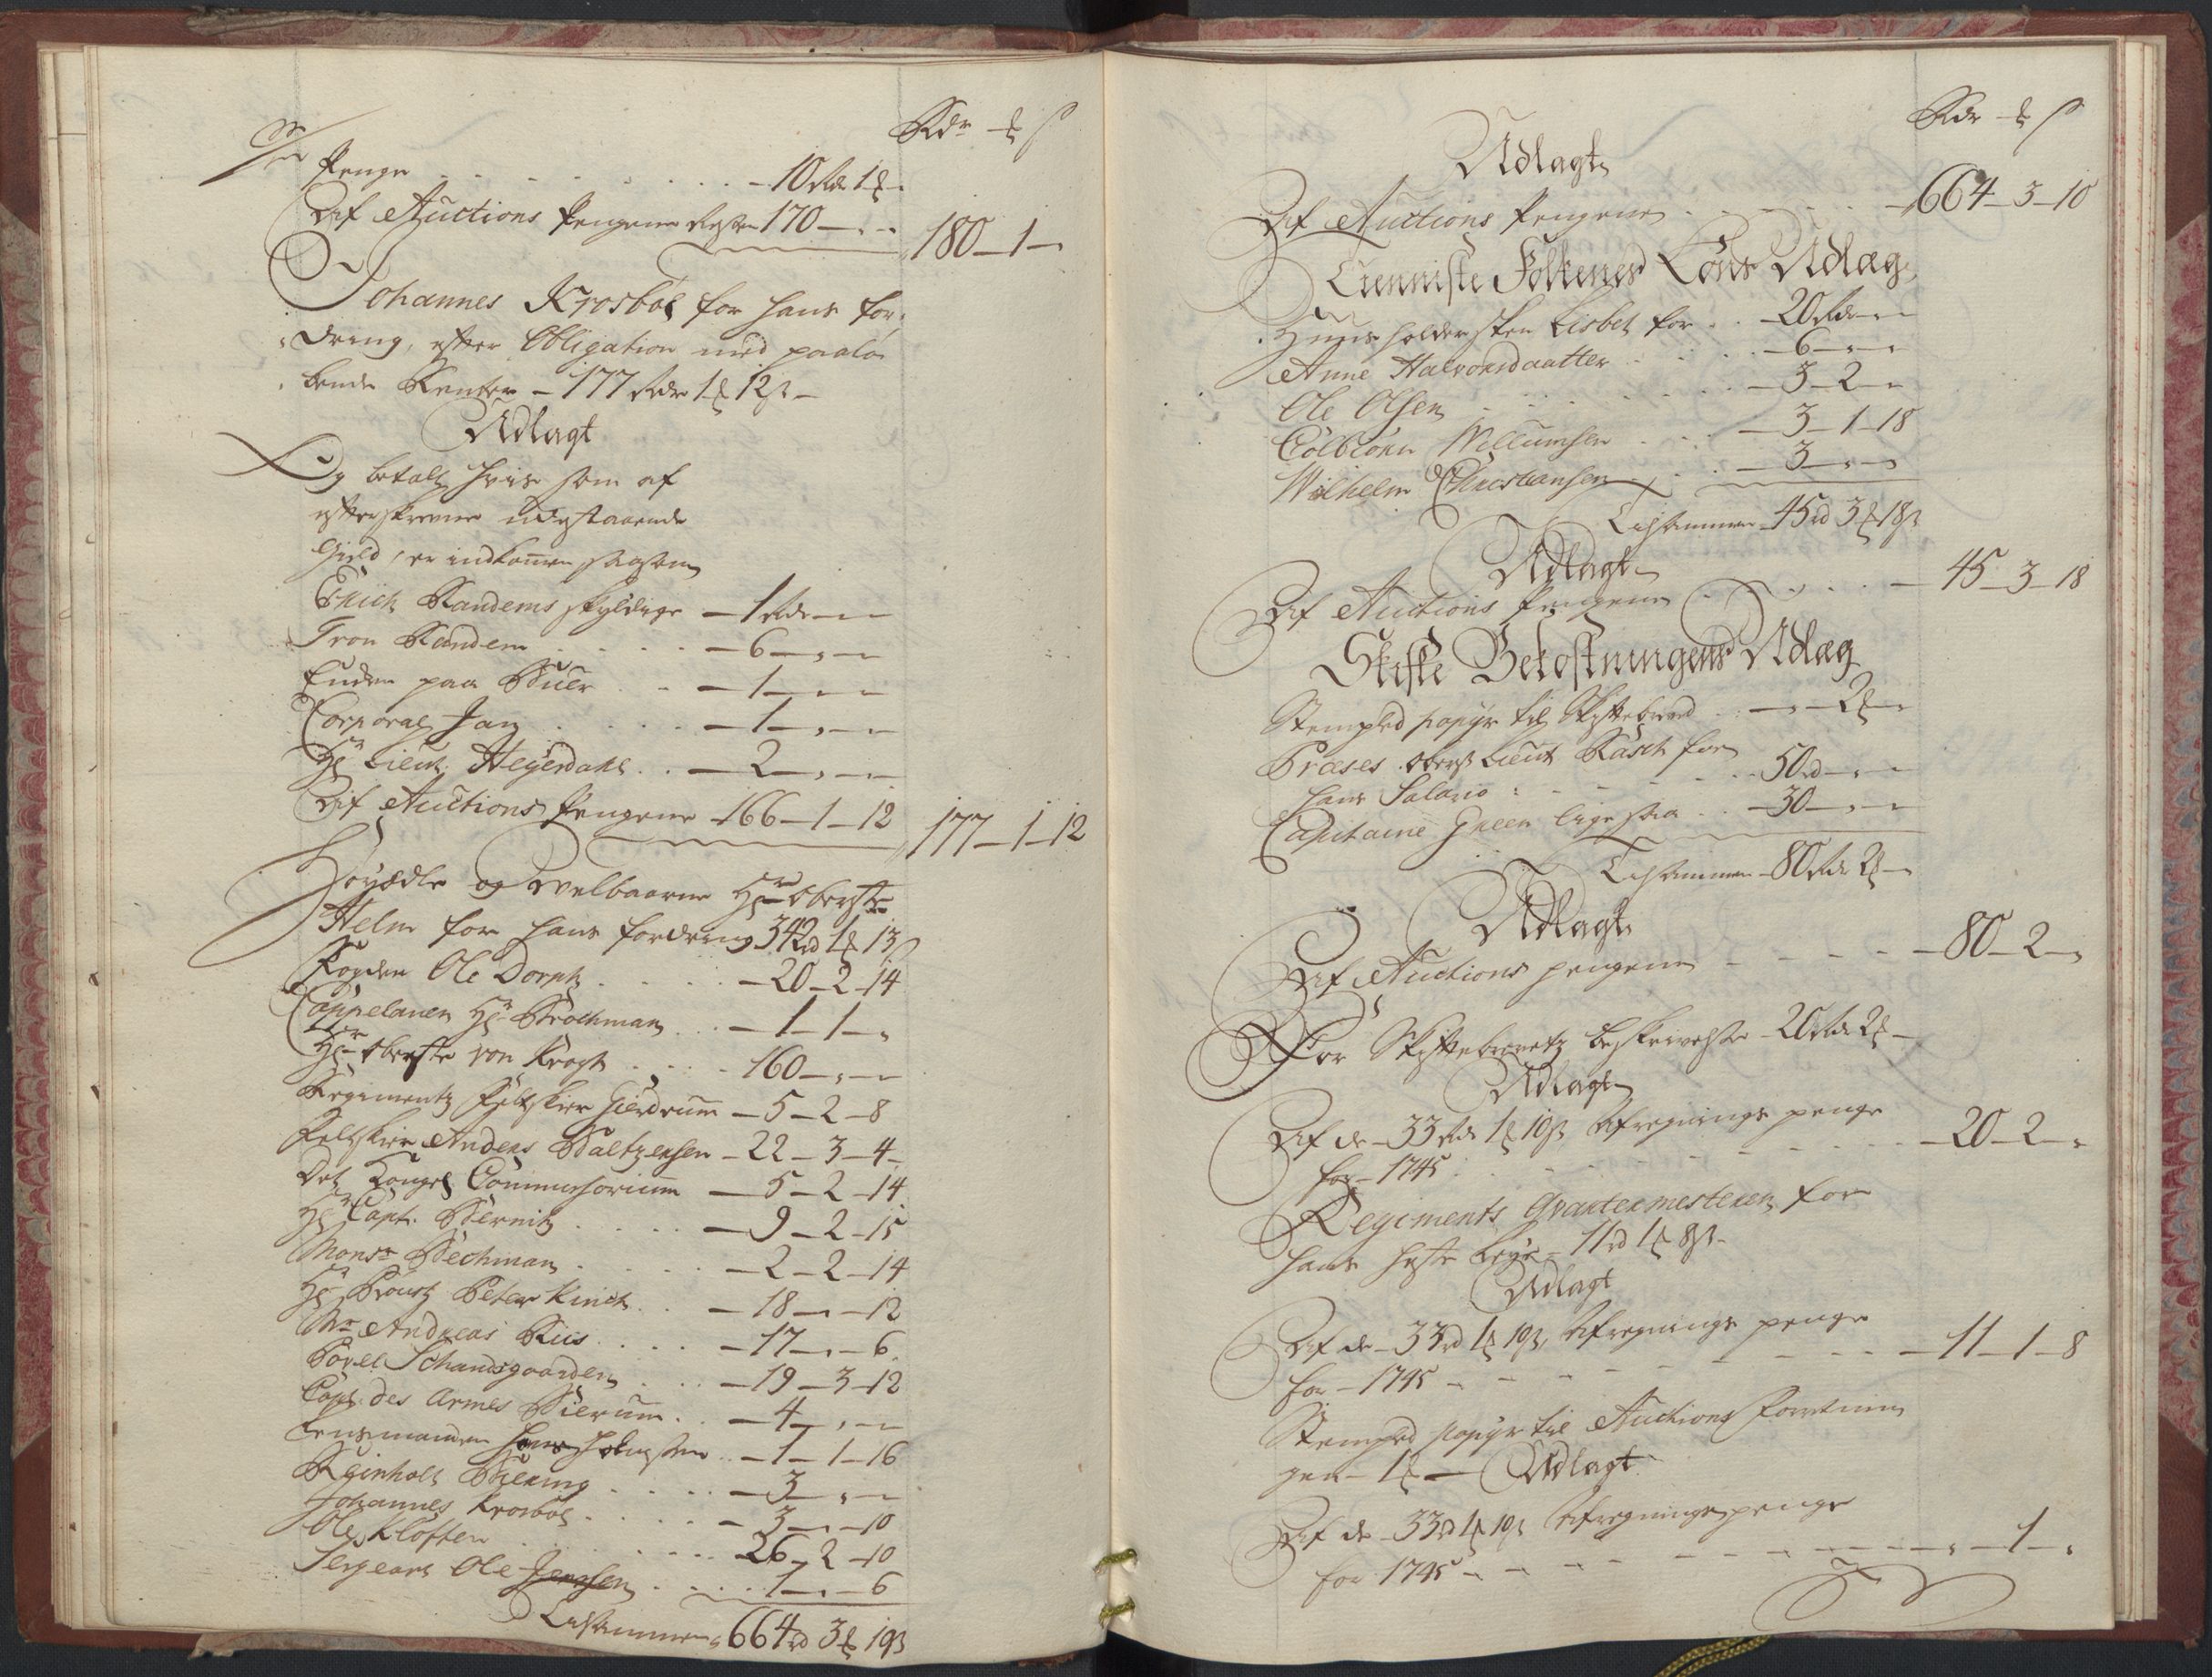 Rdr ₰ ß
Penge - - - - 10 Rdr 1 ₰ -
Af Auctions Pengene 170 - - -
180 - 1 -
Johannes Krosbøl for hans for-
dring, efter Obligation med paalø-
bende Renter - 177 Rdr 1 ₰ 12 ß -
Udlagt
Og betalt hvis som af
efterskrevne udestaaende
Gield, er indkommen saasom
Erich Randems skyldige - 1 Rdr - -
Tron Randem - 6 - -
Enken paa Buer - 1 - -
Corporal Jan - 1 - -
Hr Lieut. Heyerdahl - 2 - -
Af Auctions Pengene 166 - 1 - 12
177 - 1 - 12
Høyædle og Velbaarne Hr Oberste
Helm for hans fordring 342 rd 1 ₰ 13 ß
Fogden Ole Dorph - 20 - 2 - 14
Cappelanen Hr Brochman - 1 - 1 -
Hr Oberste von Krogh - 160 - -
Regiments Feltskier Gierdrum - 5 - 2 - 8
Feltskier Anders Baltzersen - 22 - 3 - 4
Det Kongel Commissorium - 5 - 2 - 14
Hr Capt. Bernitz - 9 - 2 - 15
Monsr Bechman - 2 - 2 - 14
Hr Provst Peter Kinch - 18 - - 12
Mr Andreas Riis - 17 - - 6
Povel Schandsgaarden - 19 - 3 - 12
Capt. des Armes Bierum - 4 - -
Lensmanden Hans - 1 - 1 - 16
Reinholt Biering - 3 - -
Johannes Krosbøl - 3 - - 10
Ole Kløften - 26 - 2 - 10
Sergeant Ole Jensen - 1 - - 6
Tilsammen 664 rd 3 ₰ 10 ß
Rdr ₰ ß
Udlagt
Af Auctions Pengene - 664 - 3 - 10
Tienniste Folkenes Løns Udlæg
Huusholdersken Lisbet for - 20 Rdr - -
Anne Halvorsdaatter - 6 - -
Ole Olsen - 3 - 2 -
Colbiørn Willumsen - 3 - 1 - 18
Wilhelm Christiansen - 3 - -
Tilsammen 45 rd 3 ₰ 18 ß
Udlagt
Af Auctions Pengene - 45 - 3 - 18
Skifte Bekostningens Udlæg
Stempled papiir til Skiftebrev - - 2 ₰ -
Præses Oberst Lieut Rasch for
hans Salario - 50 rd - -
Capitaine Green lige saa - 30 - -
Tilsammen 80 Rdr 2 ₰ -
Udlagt
Af Auctions pengene - 80 - 2 -
For Skiftebrevets beskrivelse 20 Rdr 2 ₰ -
Udlagt
Af de 33 Rdr 1 ₰ 10 ß Afregnings penge
for 1745 - 20 - 2 -
Regiments Qvartermesteren for
hans heste leye - 11 rd 1 ₰ 8 ß -
Udlagt
Af de 33 rd 1 ₰ 10 ß Afregnings penge
for 1745 - 11 - 1 - 8
Stempled papiir til Auctions Forretnin
gen - 1 ₰ - Udlagt
Af de 33 rd 1 ₰ 10 ß Afregnings penge
for 1745 - - 1 -